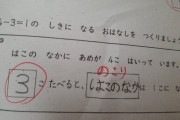 4-3=1の しきに なる おはなしを つくりましょう
はこの なかに あめが 4こ はいって います。
のこり
3こ たべると、 はこのなかは 1こに な